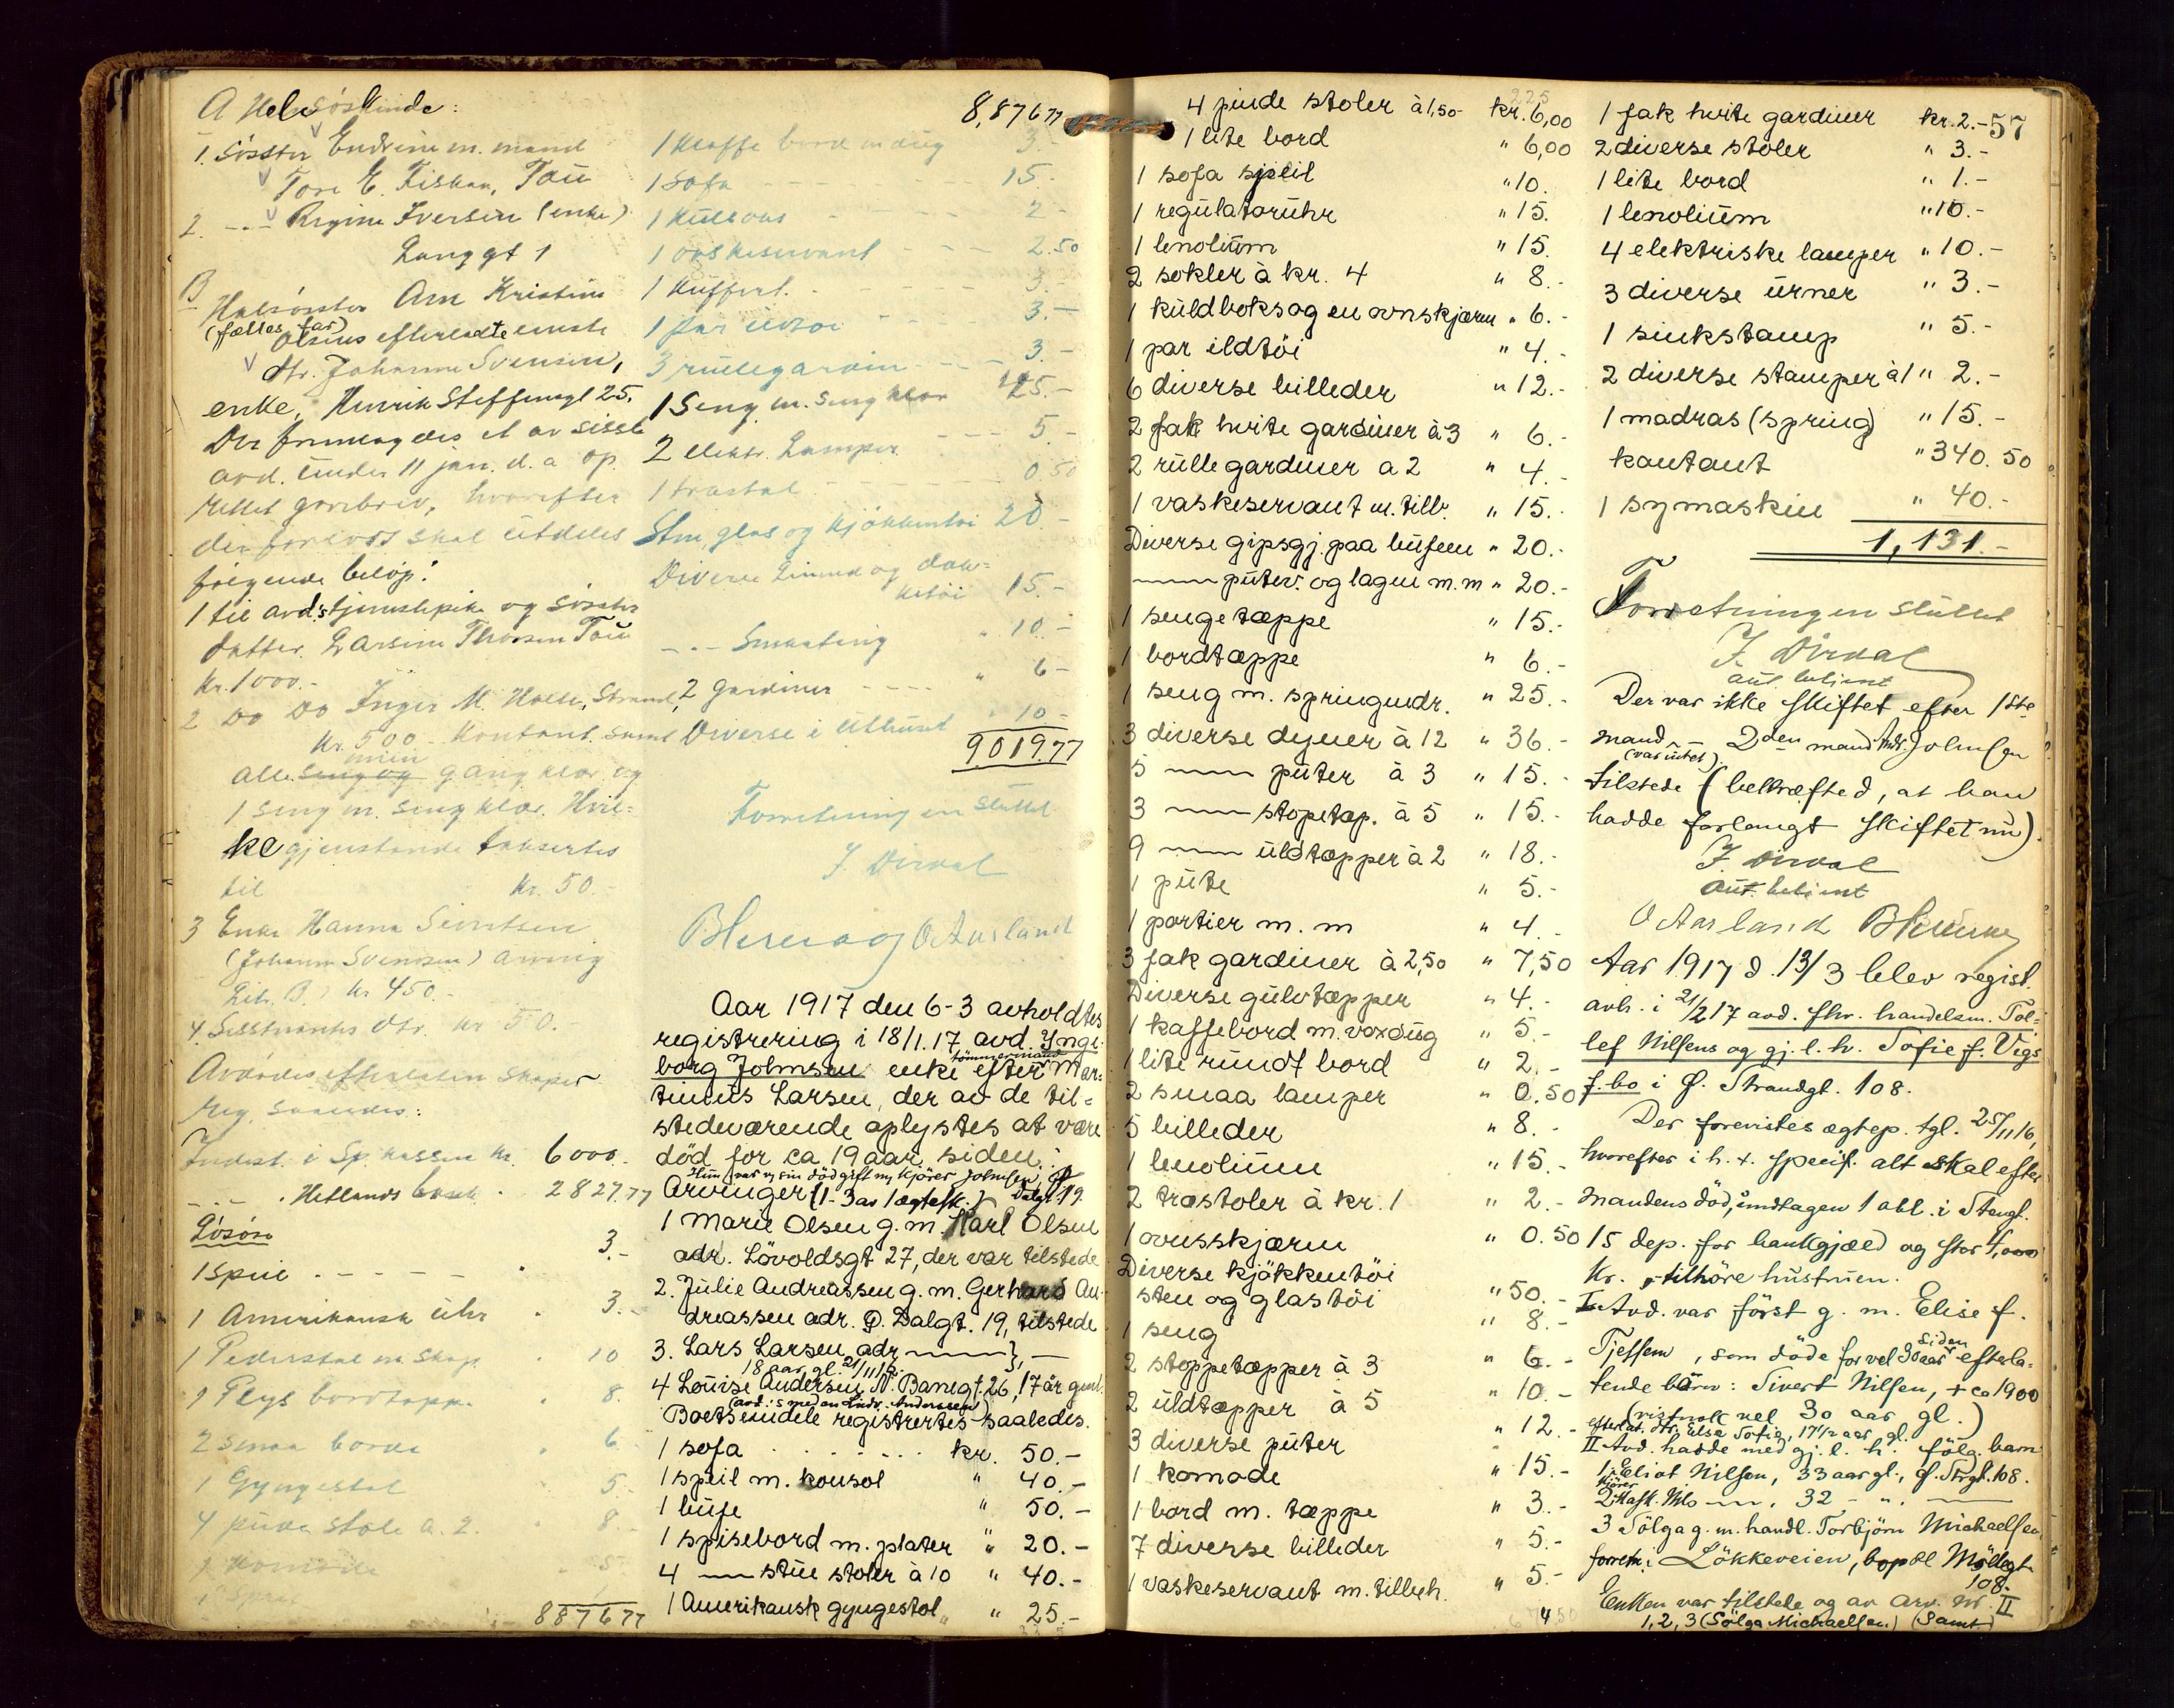 A Helsöskende:
1. Sösster Endrine m. mand
Tore E. Fiskan, Tau
2. -"- Regine Iversen (enke)
Langgt 1
B
Halvsöster Ane Kristine
(fælles far)
Olsens efterladte eneste
dtr. Johanne Svensen,
enke, Henrik Steffensgt 25.
Der fremlagdes et av sisste
avd. under 11 jan. d.a. op
rettet gavebrev, hvorefter
der forlods skal utdeles
følgende beløp:
1 til avd.s tjenestepike og sösster
datter Larsine Thorsen Tau
kr. 1000.-
2 Do Do Inger M. Holte, Strand,
kr. 500.- kontant samt
alle mine gangklær og
1 seng m. sengklær. Hvil=
ke gjenstande takseres
til kr. 50.-
3 Enke Hanna Sivertsen
(Johanne Svendsen) arving
Litr. B.) kr 450.-
4. Sisstnævntes dtr. kr 50.-
Avdödes efterlatenskaper
reg. saaledes:
Indest. i Sp.kassen kr. 6000.-
-"- . Hetlands " . 2827.77
Lösöre
1 speil . - - - - . 3.-
1 Amerikansk uhr . 3.-
1 Pederstal m. skap . 10
1 Plys bordtæppe . 8.
2 smaa borde . 6
1 Gyngestol . 5
4 pinde stole a. 2. . 8.-
1 Komode . 5
1 speil
8876 77

8,876 77
1 klaffe bord m dug 3.-
1 Sofa - - - 15.-
1 Kulboks - - - 2-
1 vaskeservant - - - 2.50
1 Kuffert. - - - 3.-
1 par ildtöi - - 3.-
3 rullegardin - - - 3.-
1 Seng m. sengklær 25.-
2 elektr. Lamper - - - 5.-
1 træstol - - - 0.50
Sten, glas og kjökkentöi 20.-
Diverse Linned og dæk=
ketöi 15.-
-"- Smaating " 10.-
2 Gardiner - - - - " 6-
Diverse i uthuset " 10-
9019.77
Forretningen sluttet
J. Dirdal
O Aarland

Aar 1917 den 6-3 avholdtes
registrering i 18/1.17 avd. Inge-
borg Johnsen enke efter tömmermand Mar=
tinius Larsen, der av de til=
stedeværende oplystes at være
död for ca 19 aar siden.
Hun var v. sin död gift m. kjörer Johnsen, Ø. Dalgt. 19.
Arvinger (1-3 av 1 ægtesk.)
1 Marie Olsen g. m. Karl Olsen
adr. Lövoldsgt 27, der var tilstede
2. Julie Andreassen g. m. Gerhard An-
dreassen adr. Ø. Dalgt. 19, tilstede
3. Lars Larsen adr —"— }, —
18 aar gl. 21/11 16.
4 Louise Andersen N. Banegt 26, 17 år gml.
Boets eiendele registrertes saaledes.
1 sofa . . . . . . . kr. 50.-
1 speil m. konsol " 40.-
1 bufe " 50.-
1 spisebord m. plater " 20.-
4 —"— stue stoler à 10 " 40.-
1 Amerikansk gyngestol " 25.-

225
4 pinde stoler à 1,50- kr. 6,00
1 lite bord " 6,00
1 sofa speil " 10.
1 regulatoruhr " 15.
1 lenolium " 15.
2 sokler à kr. 4 " 8.-
1 kuldboks og en ovnskjærm " 6.-
1 par ildtöi " 4.-
6 diverse billeder " 12.-
2 fak hvite gardiner à 3 " 6.-
2 rullegardiner a 2 " 4.-
1 vaskeservant m. tilb. " 15.-
Diverse gipsgj. paa bufeen " 20.-
—"— putev. og lagen m.m " 20.-
1 sengetæppe " 15.-
1 bordtæppe " 6.-
1 seng m. springmdr. " 25.-
3 diverse dyner à 12 " 36.-
5 —"— puter à 3 " 15.-
3 —"— stopetæp. à 5 " 15.-
9 —"— uldtæpper à 2 " 18.-
1 pute " 5.-
1 portier m. m " 4.-
3 fak gardiner à 2,50 " 7,50
Diverse gulvtæpper " 4.-
1 kaffebord m. voxdug " 5.-
1 lite rundt bord " 2.-
2 smaa lamper " 0.50
5 billeder " 8.-
1 lenolium " 15.-
2 træstoler à kr. 1 " 2.-
1 ovnsskjærm " 0.50
Diverse kjökkentöi
sten og glastöi " 50.-
1 seng " 8.-
2 stoppetæpper à 3 " 6.-
2 uldtæpper à 5 " 10.-
3 diverse puter " 12.-
1 komode " 15.-
1 bord m. tæppe " 3.-
7 diverse billeder " 5.-
1 vaskeservant m. tilbeh. " 5.-

1 fak hvite gardiner kr. 2.-
57
2 diverse stoler " 3.-
1 lite bord " 1.-
1 lenolium " 10.-
4 elektriske lamper " 10.-
3 diverse urner " 3.-
1 sinkstamp " 5.-
2 diverse stamper à 1 " 2.-
1 madras (spring) " 15.-
kontant " 340.50
1 symaskin " 40.-
1,131.-
Forretningen sluttet
J. Dirdal
aut. betjent
Der var ikke skiftet efter 1ste
mand. - 2den mand Johnsen
(var intet)
tilstede (bekræfted, at han
hadde forlangt skiftet nu).
J. Dirdal
aut. betjent
O Aarland
Aar 1917 d. 13/3 blev regist.
avh. i 21/2 17 avd. fhv. handelsm. Tol=
lef Nilsens og gj. l. h. Sofie f. Vigs
f.bo i Ø. Strandgt. 108.
Der forevistes ægtep. tgl. 25/11 16,
hvorefter i h. t. specif. alt skal efter
mandens död, undtagen 1 obl. i Stavgt.
15 dep. for bankgjæld og stor 4,000
kr. tilhöre hustruen.
I. Avd. var först g. m. Elise f.
Tjessem, som döde for vel 30 aar siden efterla-
tende barn: Sivert Nilsen, + ca 1900
(vistnok vel 30 aar gl.)
efterlat. dtr. Elsa Sofie, 17 1/2 aar gl.
II Avd. hadde med gj. l. h. fölg. barn
1. Eliot Nilsen, 33 aar gl., Ø. Strgt. 108.
2. Kask. Nils —"—, 32 - ". —
3 Sölga g. m. handl. Torbjörn Michaelsen,
forretn. i Lökkeveien, bopæl Möllegt
108.
Enken var tilstede og av arv. nr. II
1, 2, 3 (Sölga Michaelsen) (Samt)